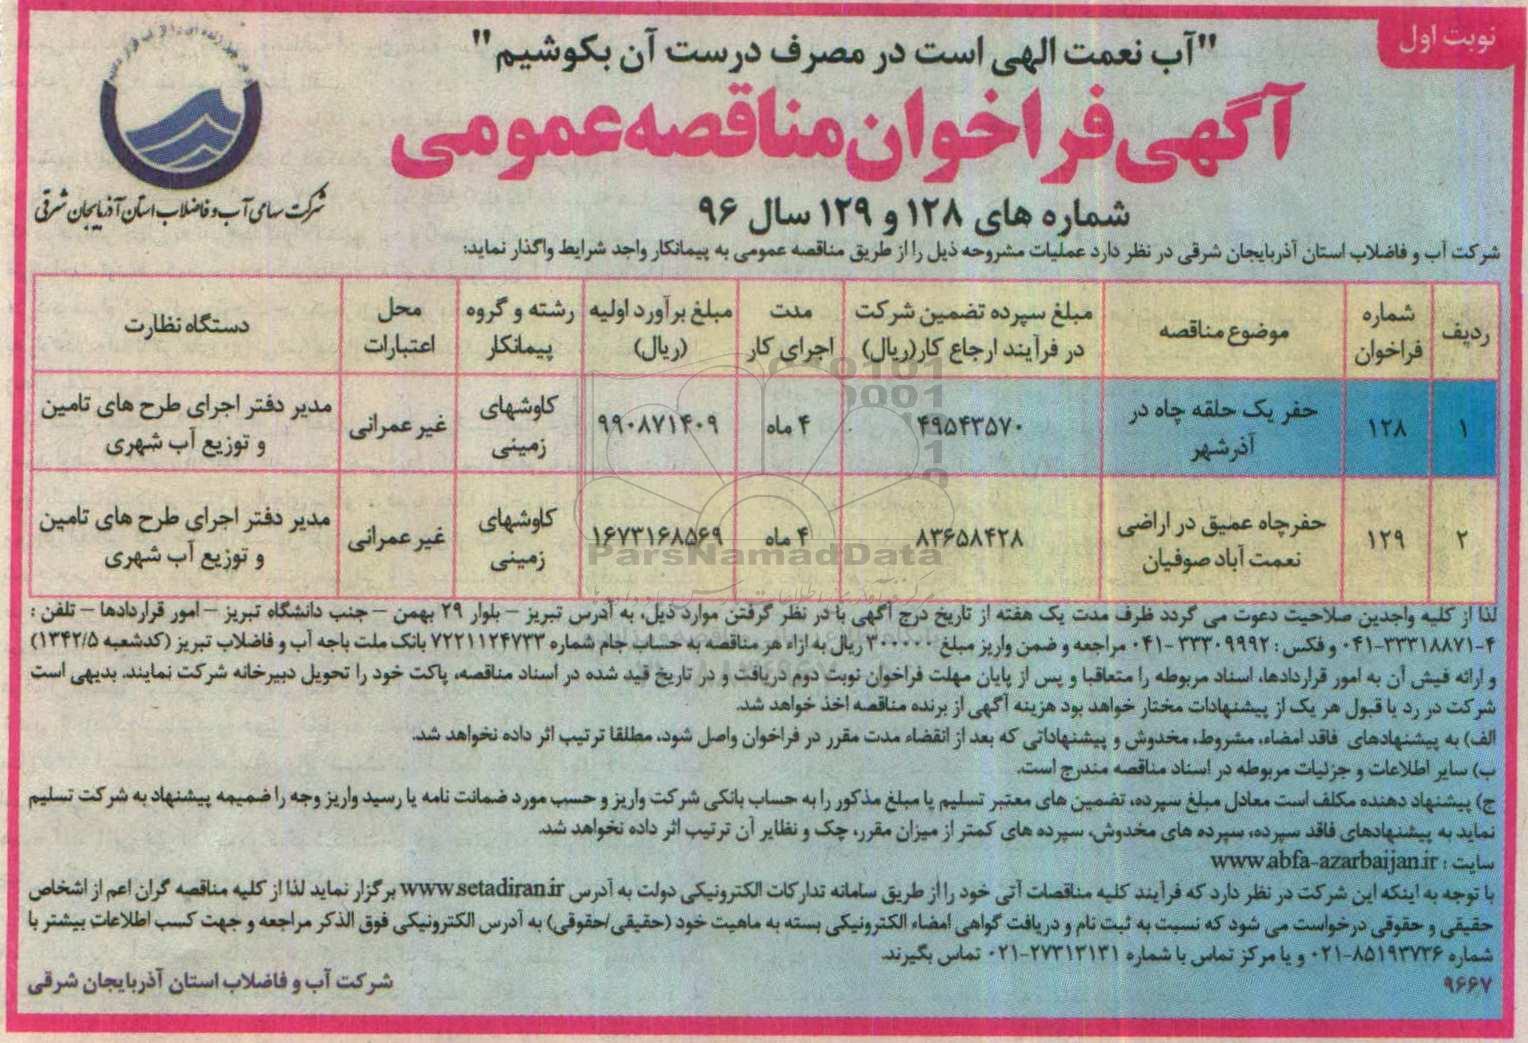 نوبت اول
"آب نعمت الهی است در مصرف درست آن بکوشیم"
آگهی فراخوان مناقصه عمومی
شماره های ۱۲۸ و ۱۲۹ سال ۹۶
شرکت سهامی آب و فاضلاب استان آذربایجان شرقی
شرکت آب و فاضلاب استان آذربایجان شرقی در نظر دارد عملیات مشروحه ذیل را از طریق مناقصه عمومی به پیمانکار واجد شرایط واگذار نماید:
ردیف | شماره فراخوان | موضوع مناقصه | مبلغ سپرده تضمین شرکت در فرآیند ارجاع کار(ریال) | مدت اجرای کار | مبلغ برآورد اولیه (ریال) | رشته و گروه پیمانکار | محل اعتبارات | دستگاه نظارت
۱ | ۱۲۸ | حفر یک حلقه چاه در آذرشهر | ۴۹۵۴۳۵۷۰ | ۴ ماه | ۹۹۰۸۷۱۴۰۹ | کاوشهای زمینی | غیر عمرانی | مدیر دفتر اجرای طرح های تامین و توزیع آب شهری
۲ | ۱۲۹ | حفرچاه عمیق در اراضی نعمت آباد صوفیان | ۸۳۶۵۸۴۲۸ | ۴ ماه | ۱۶۷۳۱۶۸۵۶۹ | کاوشهای زمینی | غیر عمرانی | مدیر دفتر اجرای طرح های تامین و توزیع آب شهری
ParsNamadData
لذا از کلیه واجدین صلاحیت دعوت می گردد ظرف مدت یک هفته از تاریخ درج آگهی با در نظر گرفتن موارد ذیل، به آدرس تبریز – بلوار ۲۹ بهمن – جنب دانشگاه تبریز – امور قراردادها – تلفن :
۴-۰۴۱-۳۳۳۱۸۸۷۱ و فکس : ۳۳۳۰۹۹۹۲ -۰۴۱ مراجعه و ضمن واریز مبلغ ۳۰۰۰۰۰ ریال به ازاء هر مناقصه به حساب جام شماره ۷۲۲۱۱۲۴۷۳۳ بانک ملت باجه آب و فاضلاب تبریز (کدشعبه ۱۳۴۲/۵)
و ارائه فیش آن به امور قراردادها، اسناد مربوطه را متعاقبا و پس از پایان مهلت فراخوان نوبت دوم دریافت و در تاریخ قید شده در اسناد مناقصه، پاکت خود را تحویل دبیرخانه شرکت نمایند. بدیهی است
شرکت در رد یا قبول هر یک از پیشنهادات مختار خواهد بود هزینه آگهی از برنده مناقصه اخذ خواهد شد.
الف) به پیشنهادهای فاقد امضاء، مشروط، مخدوش و پیشنهاداتی که بعد از انقضاء مدت مقرر در فراخوان واصل شود، مطلقا ترتیب اثر داده نخواهد شد.
ب) سایر اطلاعات و جزئیات مربوطه در اسناد مناقصه مندرج است.
ج) پیشنهاد دهنده مکلف است معادل مبلغ سپرده، تضمین های معتبر تسلیم یا مبلغ مذکور را به حساب بانکی شرکت واریز و حسب مورد ضمانت نامه یا رسید واریز وجه را ضمیمه پیشنهاد به شرکت تسلیم
نماید به پیشنهادهای فاقد سپرده، سپرده های مخدوش، سپرده های کمتر از میزان مقرر، چک و نظایر آن ترتیب اثر داده نخواهد شد.
سایت : www.abfa-azarbaijan.ir
با توجه به اینکه این شرکت در نظر دارد که فرآیند کلیه مناقصات آتی خود را از طریق سامانه تدارکات الکترونیکی دولت به آدرس www.setadiran.ir برگزار نماید لذا از کلیه مناقصه گران اعم از اشخاص
حقیقی و حقوقی درخواست می شود که نسبت به ثبت نام و دریافت گواهی امضاء الکترونیکی بسته به ماهیت خود (حقیقی/حقوقی) به آدرس الکترونیکی فوق الذکر مراجعه و جهت کسب اطلاعات بیشتر با
شماره ۸۵۱۹۳۷۳۶-۰۲۱ و یا مرکز تماس با شماره ۲۷۳۱۳۱۳۱-۰۲۱ تماس بگیرند.
۹۶۶۷
شرکت آب و فاضلاب استان آذربایجان شرقی